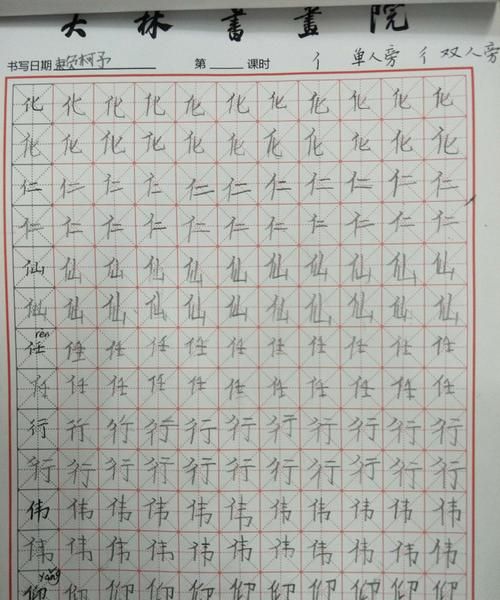 大林書畫院
书写日期 柯予 第 课时 亻 单人旁 彳 双人旁
化 化 化 化 化 化 化 化 化 化 化
化 化 化 化 化 化 化 化 化 化 化
仁 仁 仁 仁 仁 仁 仁 仁 仁 仁 仁
仁 仁 仁 仁 仁 仁 仁 仁 仁 仁 仁
仙 仙 仙 仙 仙 仙 仙 仙 仙 仙 仙
仙 仙 仙 仙 仙 仙 仙 仙 仙 仙 仙
rèn
任 任 任 任 任 任 任 任 任 任 任
任 任 任 任 任 任 任 任 任 任
行 行 行 行 行 行 行 行 行 行 行
行 行 行 行 行 行 行 行 行 行 行
伟 伟 伟 伟 伟 伟 伟 伟 伟 伟 伟
伟 伟 伟 伟 伟 伟 伟 伟 伟 伟 伟
yǎng
仰 仰 仰 仰 仰 仰 仰 仰 仰 仰 仰